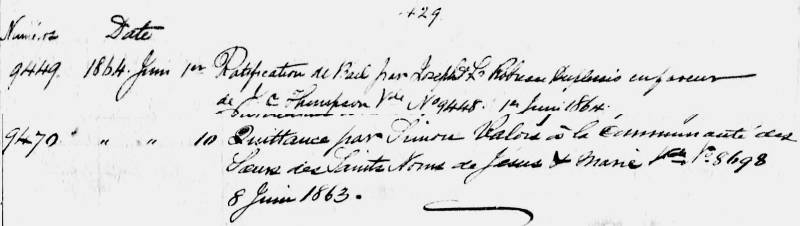 429.
Numéros Date
9449. 1864. Juin 1er Ratification de Bail par Joseph Ls Robreau Duplessis en faveur
de J. C. Thompson Vde No 9448. 1er Juin 1864.
9470 " " 10 Quittance par Simon Valois à la Communauté des
Sœurs des Saints Noms de Jésus & Marie No 8698
8 Juin 1863.